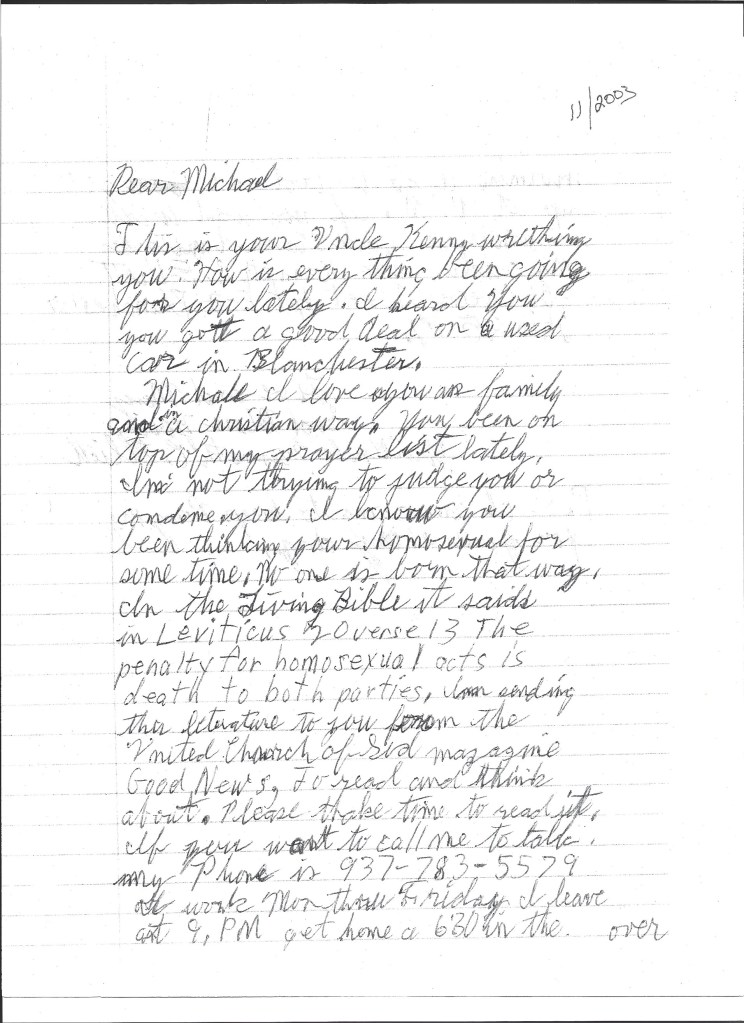 11/2003
Dear Michael
This is your Uncle Kenny wrething
you. How is every thing been going
for you lately. I heard you
you gott a good deal on a used
car in Blanchester.
Michall I love you as family
and in a christian way. You been on
top of my prayer list lately.
Im not thrying to judge you or
condeme you. I know you
been thinking your homosexual for
some time. No one is born that way.
In the Living Bible it saids
in Leviticus 20 verse 13 The
penalty for homosexual acts is
death to both parties. Im sending
this leterature to you from the
United Church of God magazagine
Good News, To read and think
about. Please thake time to read it.
If you want to call me to talk.
my Phone is 937-783-5579
work Mon thru Friday. I leave
at 9, PM get home a 630 in the. over